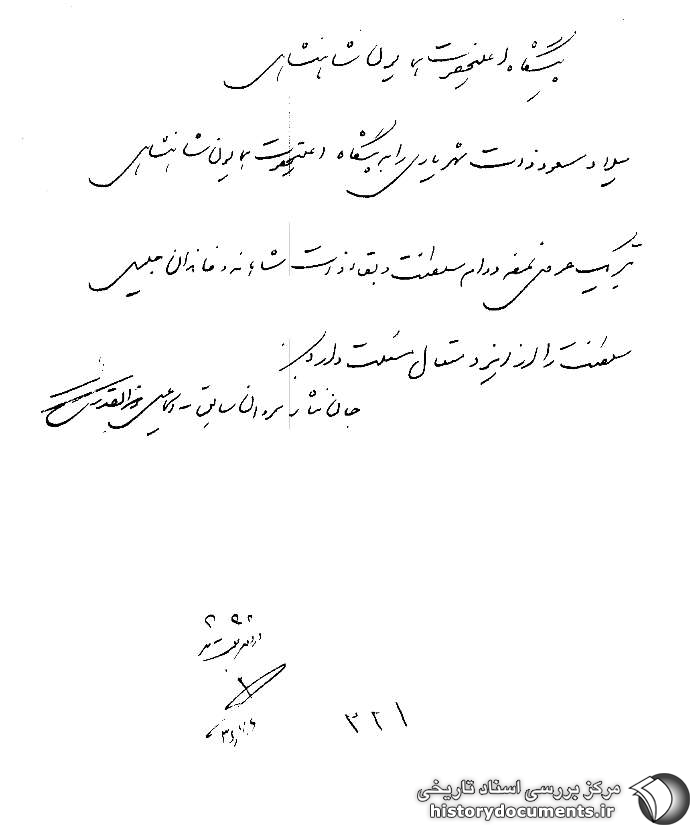 پیشگاه اعلیحضرت همایون شاهنشاهی
میلاد مسعود ذات شهریاری را به پیشگاه اعلیحضرت همایون شاهنشاهی
تبریک عرض نموده دوام سلطنت و بقاء ذات شاهانه و خاندان جلیل
سلطنت را از ایزد متعال مسئلت دارد
جان نثار سروان سابق اسماعیل ذوالقدری
۳۲۱
مرکز بررسی اسناد تاریخی
historydocuments.ir